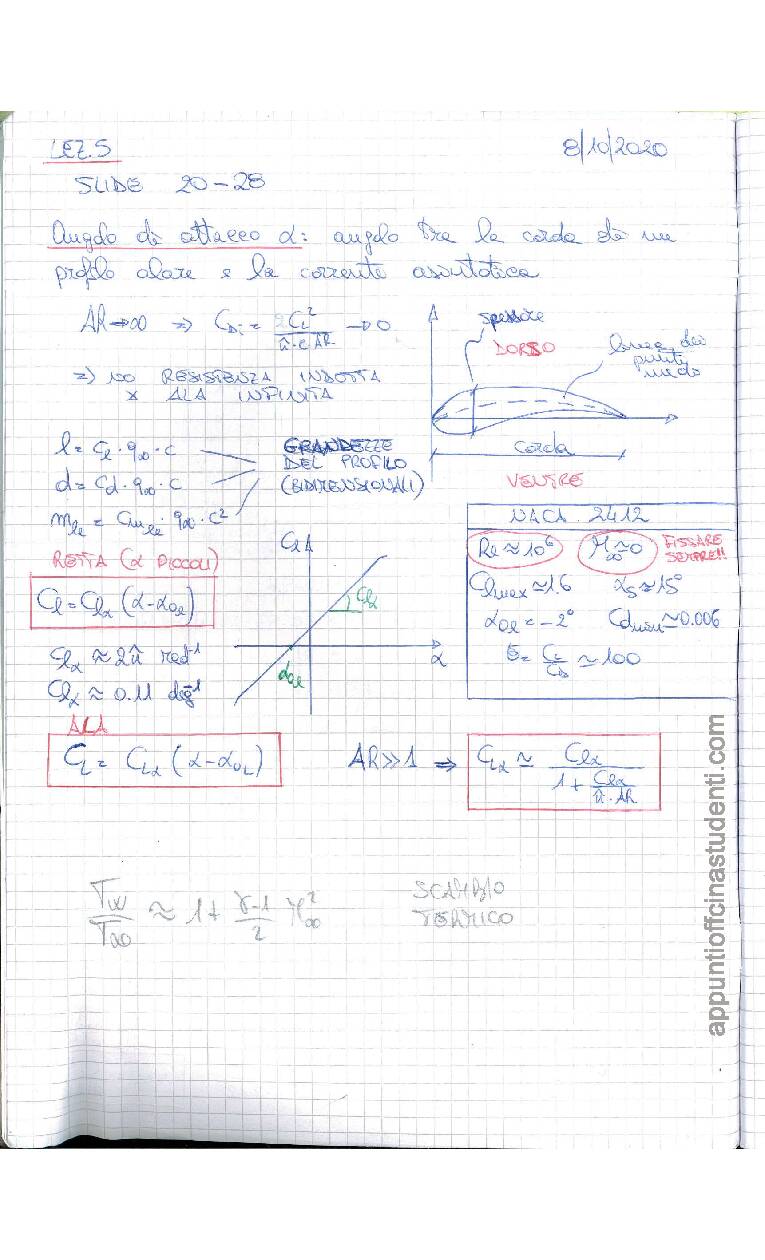 LEZ.5 8/10/2020
SLIDE 20-28
Angolo di attacco α: angolo tra la corda di un
profilo alare e la corrente asintotica
AR→∞ ⇒ C_Di = C_L² / (π·e·AR) → 0
⇒ NO RESISTENZA INDOTTA
x ALA INFINITA
spessore
DORSO
linea dei
punti
medi
corda
VENTRE
l = C_l · q∞ · c
d = C_d · q∞ · c
m_le = C_m_le · q∞ · c²
GRANDEZZE
DEL PROFILO
(BIDIMENSIONALI)
RETTA (α PICCOLI)
C_l = C_lα (α-α_0l)
C_lα ≈ 2π rad⁻¹
C_lα ≈ 0.11 deg⁻¹
C_l
C_lα
α_0l
α
NACA 2412
Re ≈ 10⁶ M∞ ≈ 0 FISSARE
SEMPRE!!
C_lmax ≈ 1.6 α_s ≈ 15°
α_0l = -2° C_dmin ≈ 0.006
E = C_L/C_D ≈ 100
ALA
C_L = C_Lα (α-α_0L)
AR>>1 ⇒ C_Lα ≈ C_lα / (1 + C_lα/(π·AR))
T_w/T∞ ≈ 1 + (γ-1)/2 M∞²
SCAMBIO
TERMICO
appuntioffcinastudenti.com